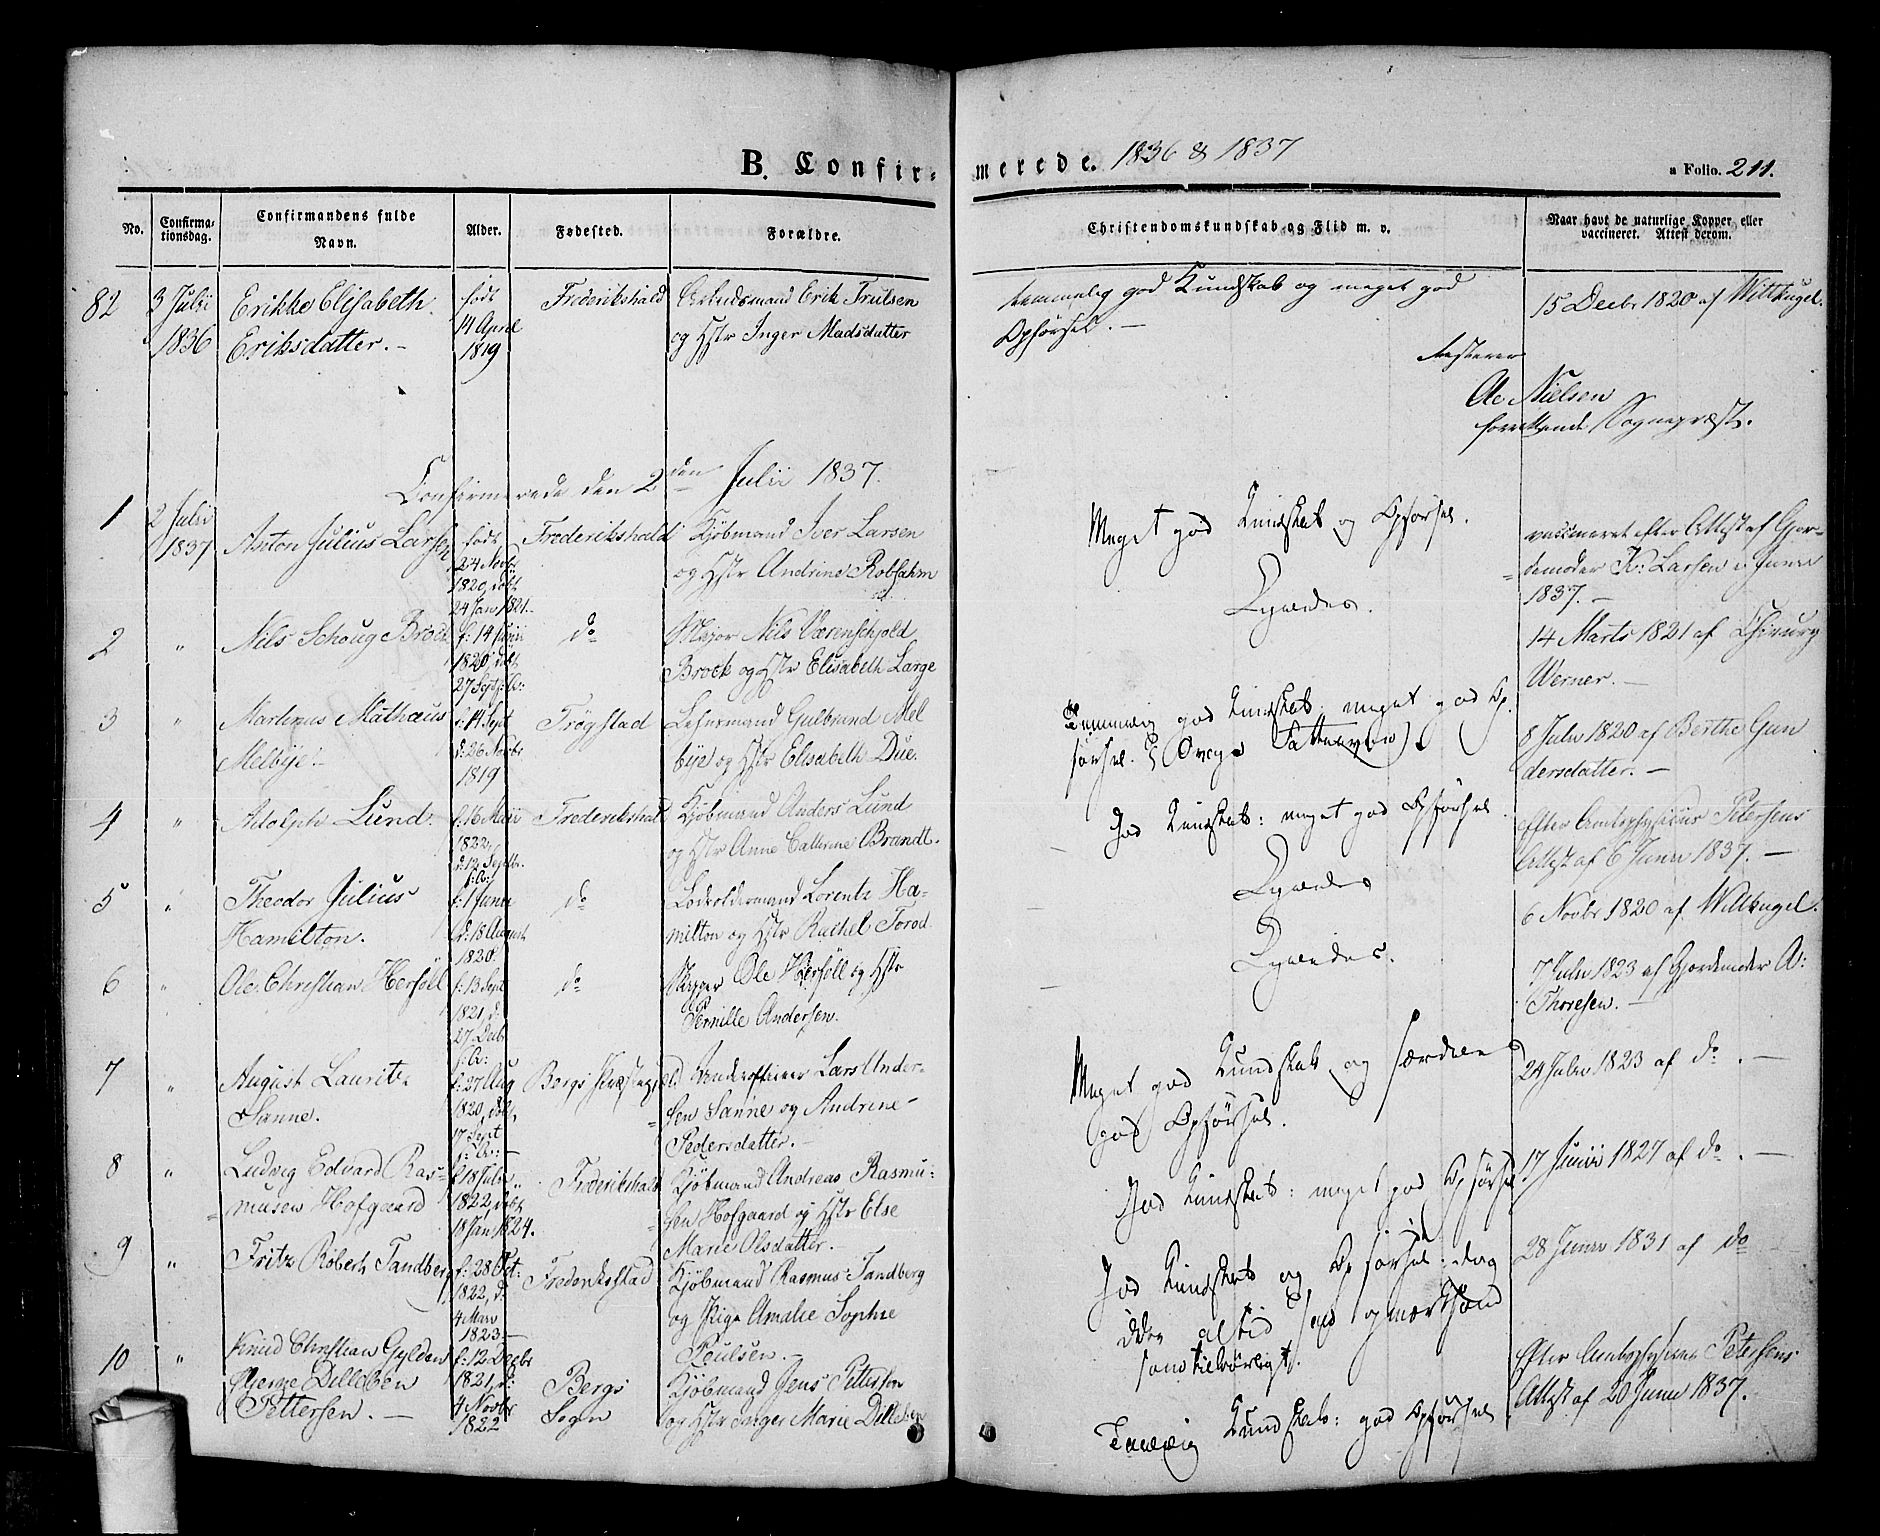 B. Confir-merede. 1836 & 1837
a Folio. 211.
No.
Confirma-
tionsdag.
Confirmandens fulde
Navn.
Alder.
Fødested.
Forældre.
Christendomskundskab og Flid m. v.
Naar havt de naturlige Kopper eller
vaccineret. Attest derom.
82
3 Julii
1836
Erikke Elisabeth
Eriksdatter. –
født
14 April
1819
Frederikshald
Arbeidsmand Erik Trulsen
og Hstr Inger Madsdatter
temmelig god Kundskab og meget god
Opførsel. –
15 Decbr 1820 af Wittkugel.
testerer
Nielsen
Sognepræst.
Confirmerede den 2den Julii 1837.
1
2 Julii
1837
Anton Julius Larsen
født
24 Novbr
1820, døbt
24 Jan 1821.
Frederikshald
Kjøbmand Iver Larsen
og Hstr Andrine Robsahm
Meget god Kundskab og Opførsel.
Ligeledes.
vaccineret efter Attest af Gjor-
demoder K: Larsen i Junii
1837. –
2
"
Nils Schoug Brock
f: 14 Junii
1820, døbt
27 Sept: s: A:
do
Major NilsVærenschjold
Brock og Hstr Elisabeth Lange
14 Marts 1821 af Chirurg
Werner. –
3
"
Martinus Mathæus
Melbye. –
f: 14 Sept
d: 26 Novbr
1819
Trøgstad
Lehnsmand Gulbrand Mel
bye og Hstr Elisabeth Due.
Temmelig god Kundskab; meget god Op-
førsel.
8 Julii 1820 af Berthe Gun
dersdatter. –
4
"
Adolph Lund.
f: 16 Maii
1822,
d: 12 Septbr.
s: A:
Frederikshald
Kjøbmand Anders Lund
og Hstr Anne Cathrine Brandt.
God Kundskab: meget god Opførsel.
Ligeledes
efter Amtsphysicus Petersens
Attest af 6 Junii 1837. –
5
"
Theodor Julius
Hamilton.
f: 1 Junii
d: 18 August
1820.
do
Lodsoldermand Lorentz Ha-
milton og Hstr Rachel Torod.
Ligeledes.
6 Novbr 1820 af Wittkugel.
6
"
Ole Christian Hersøll
f: 13 Sept
1821, d.
27 Decbr
s: A:
do
Skipper Ole Hersøll og Hstr
Pernille Andersen.
7 Julii 1823 af Gjordemoder A:
Thoresen. –
7
"
August Lauritz
Sanne.
f: 27 Aug
1820, døbt,
17 Sept
s: A: –
Bergs Præstegjeld
Underofficeer Lars Ander-
sen Sanne og Andrine
Pedersdatter. –
Meget god Kundskab og særdeles
god Opførsel.
24 Julii 1823 af do. –
8
"
Ludvig Edvard Ras-
musen Hofgaard
f 18 Julii
1822, døbt
18 Jan 1824.
Frederikshald
Kjøbmand Andreas Rasmu:
sen Hofgaard og Hstr Else
Marie Olsdatter.
God Kundskab: meget god Opførsel
17 Junii 1827 af do. –
9
"
Fritz Robert Tandberg
f: 28 Oct:
1822, d:
4 Mai
1823 –
Frederikstad
Kjøbmand Rasmus Tandberg
og Pige Amalie Sophie
Poulsen. –
God Kundskab og Opførsel: dog
ikke altid saa opmærksom
som tilbørligt.
28 Junii 1831 af do –
10
"
Knud Christian Gylden
Dilleben
Pettersen. –
f: 12 Decbr
1821, d:
4 Novbr
1822
Bergs
Sogn
Kjøbmand Jens Pettersen
og Hstr Inger Marie Dilleben
Kundskab: god Opførsel
Efter Amtsphysicus Petersens
Attest af 20 Junii 1837.